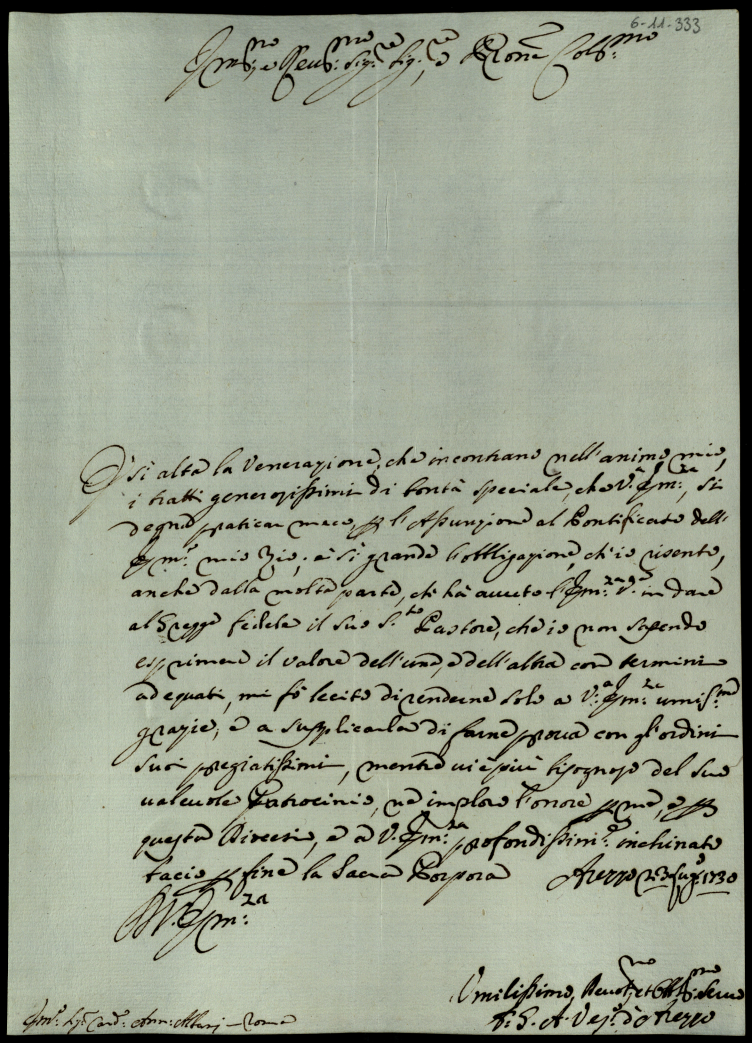 6-11-333
Em.mo e Reu.mo Sig.re Sig.re, e Pron.e Col.mo
È si alta la Venerazione, che incontrano nell'animo mio,
i tratti generosissimi di bontà speciale, che V.a Em.za, si
degnò praticar meco, per l'Assunzione al Pontificato dell'
Em.o mio Zio; e si grande l'obbligazione, ch'io risento,
anche dalla molta parte, ch'hà avuto l'Em.za V.a in dare
al Gregge fedele il suo S.to Pastore, che io non sapendo
esprimere il valore dell'una, e dell'altra con termini
adequati, mi fò lecito di renderne solo a V.a Em.za umiss.me
grazie, e a supplicarla di farne prova con gl'ordini
suoi pregiatissimi, mentre vi è più bisognoso del suo
valevole Patrocinio, ne imploro l'onore per me, e per
questa Diocesi, e à V.Em.za profondissim.e inchinato
bacio per fine la Sacra Porpora Arezzo 23 Lug.o 1730
D V. Em.za
Umilissimo, Deuot.mo, et Obl.mo Seruo
F: G. A. Ves.o d'Arezzo
Em.o Sig.r Card: Ann: Albani - Roma